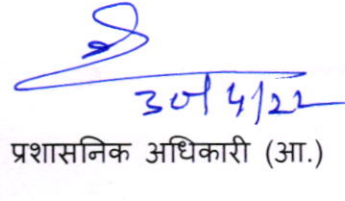 30/4/22
प्रशासनिक अधिकारी (आ.)